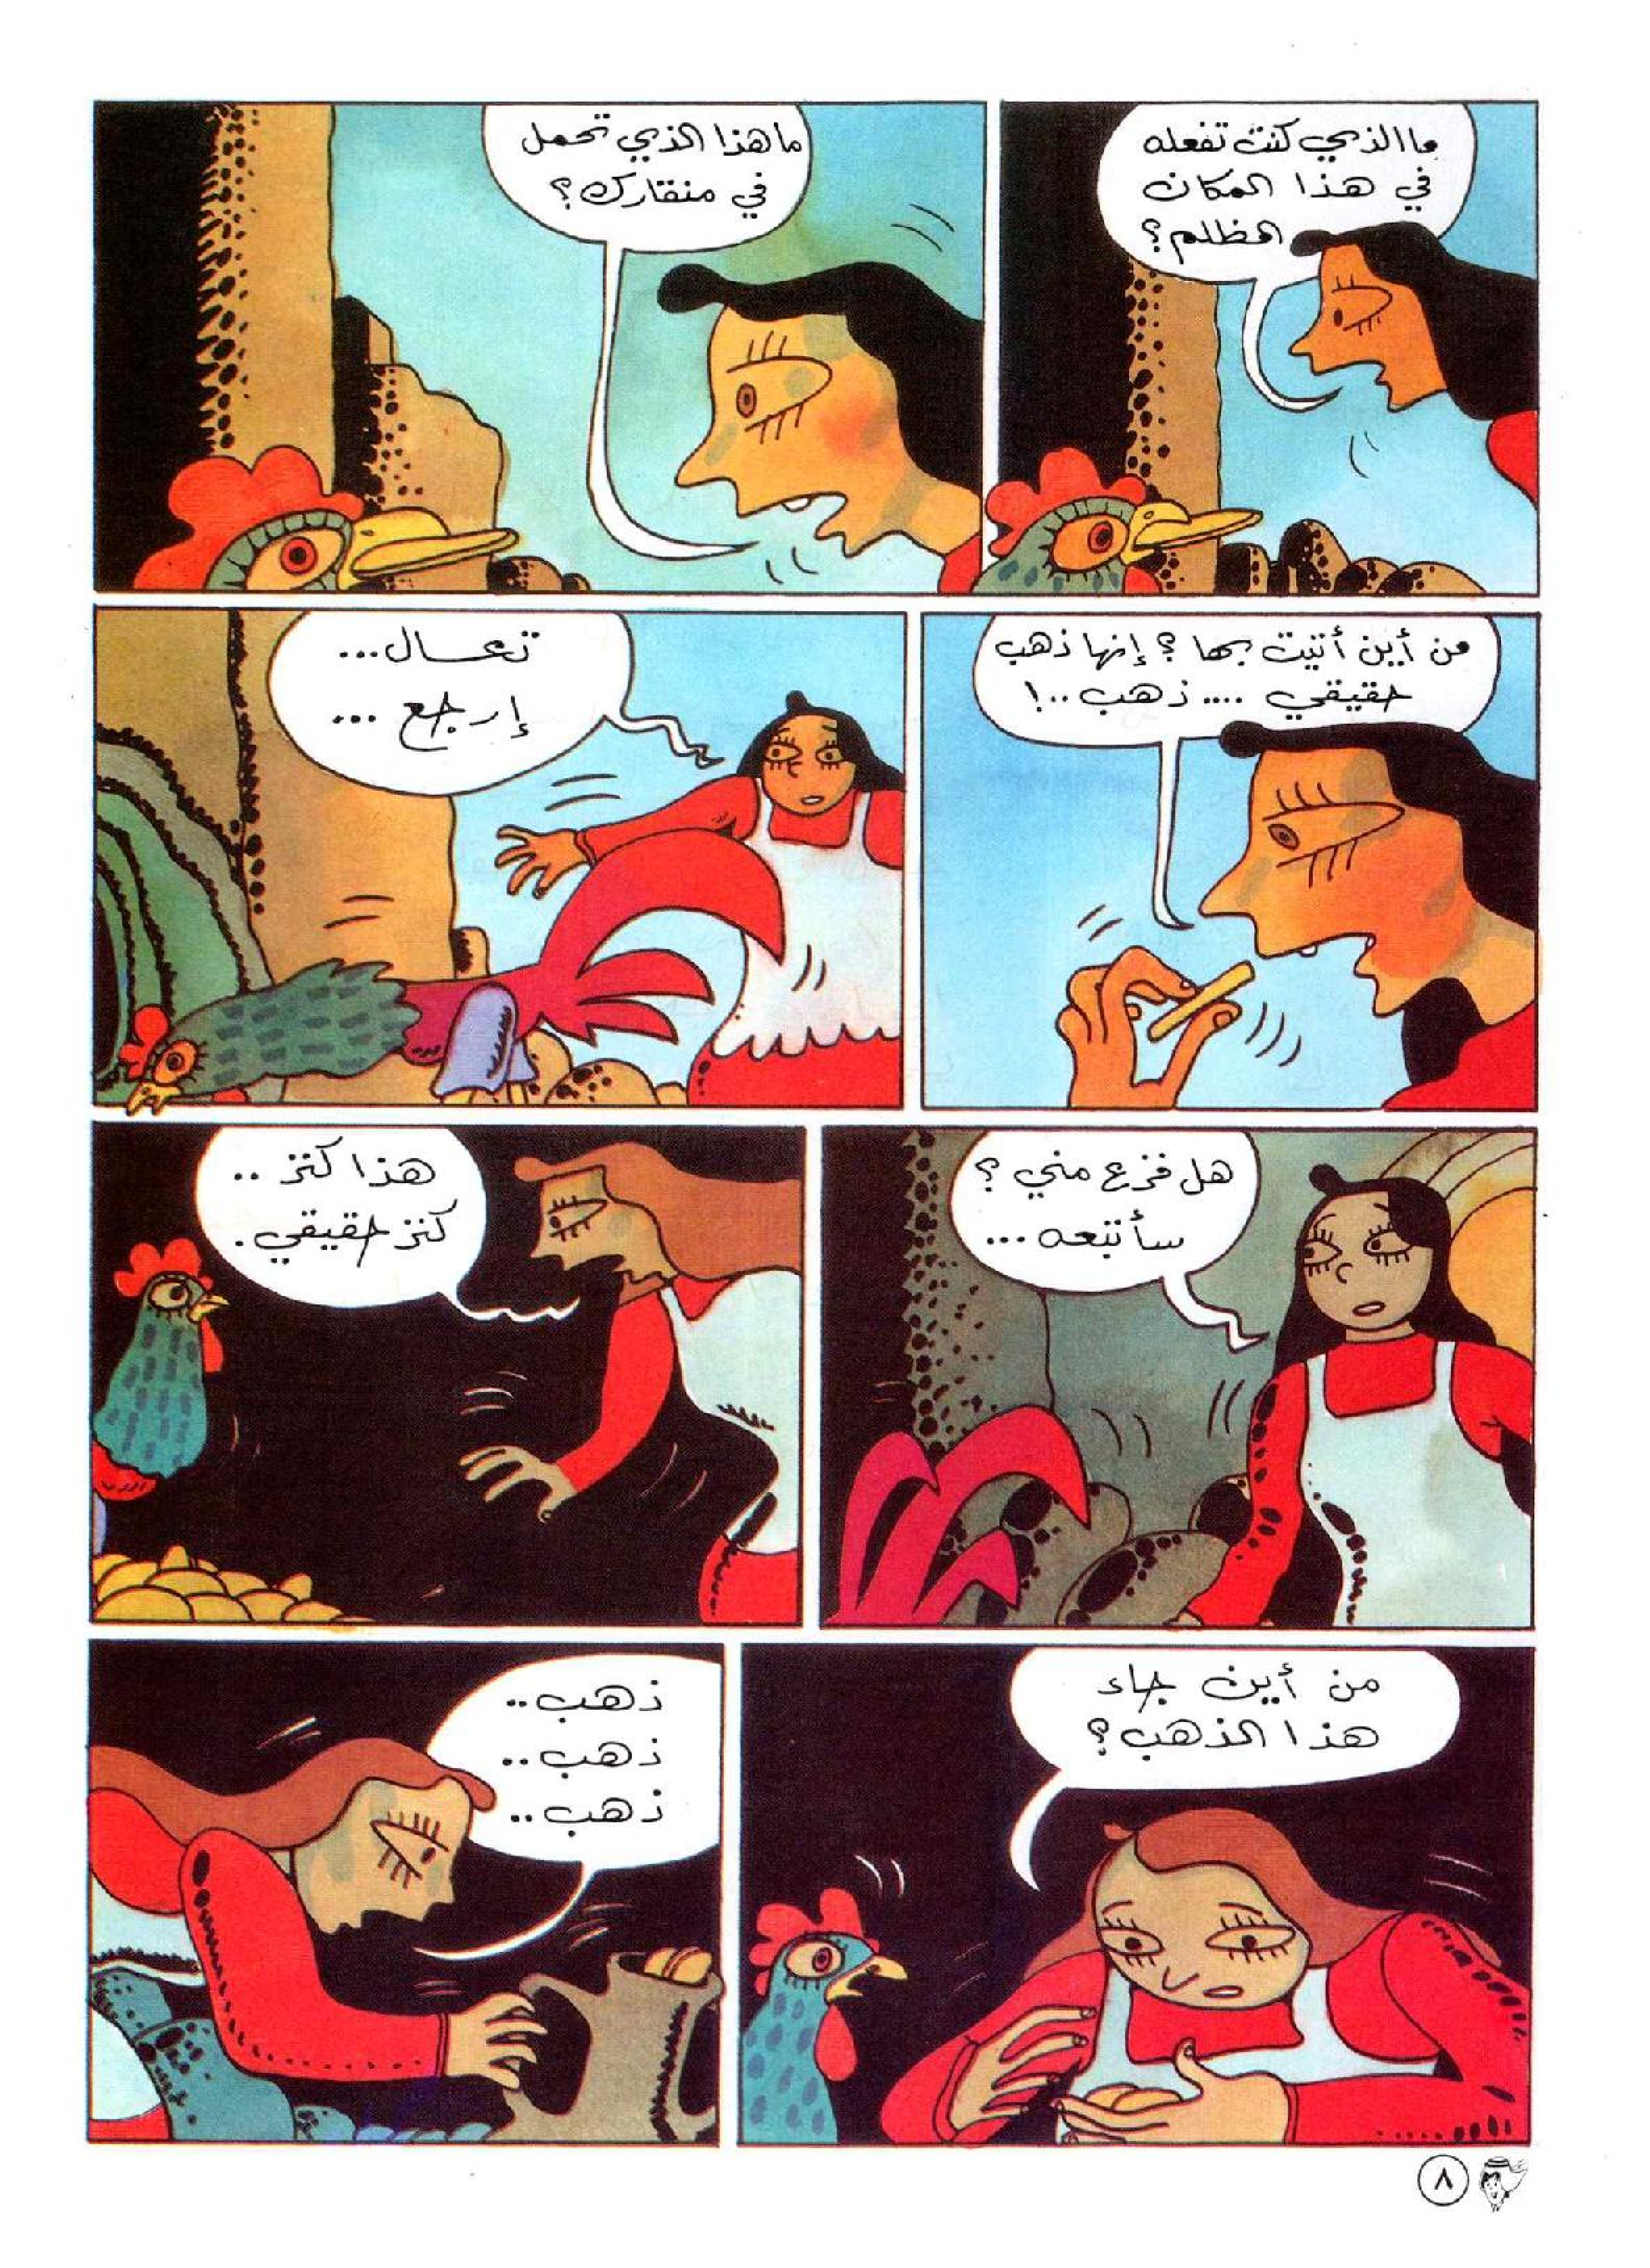 ما الذي كنت تفعله
في هذا المكان
المظلم؟
ما هذا الذي تحمل
في منقارك؟
من أين أتيت بها؟ إنها ذهب
حقيقي .... ذهب ..!
تعــال...
إرجع ...
هل فزع مني؟
سأتبعه ...
هذا كنز ..
كنز حقيقي.
من أين جاء
هذا الذهب؟
ذهب..
ذهب..
ذهب..
٨